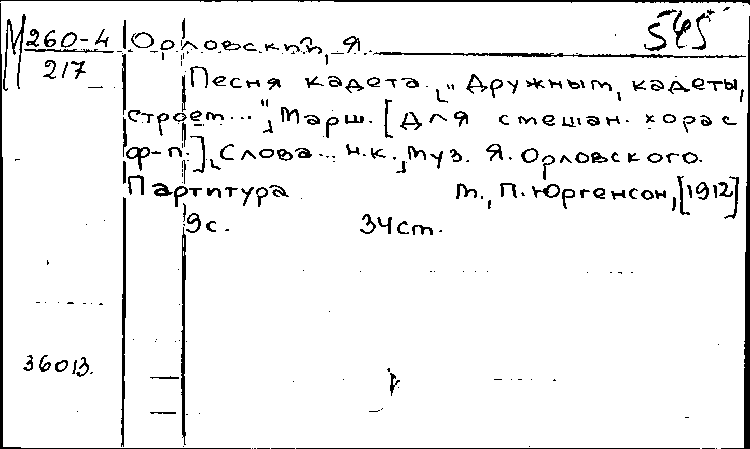 М 260-4 Орловский, Я. 545
217
Песня кадета. „Дружным, кадеты,
строем...", Марш. [Для смешан. хора с
ф-п.], Слова... Н.К., Муз. Я. Орловского.
Партитура М., П. Юргенсон, [1912]
9с. 34ст.
36013.